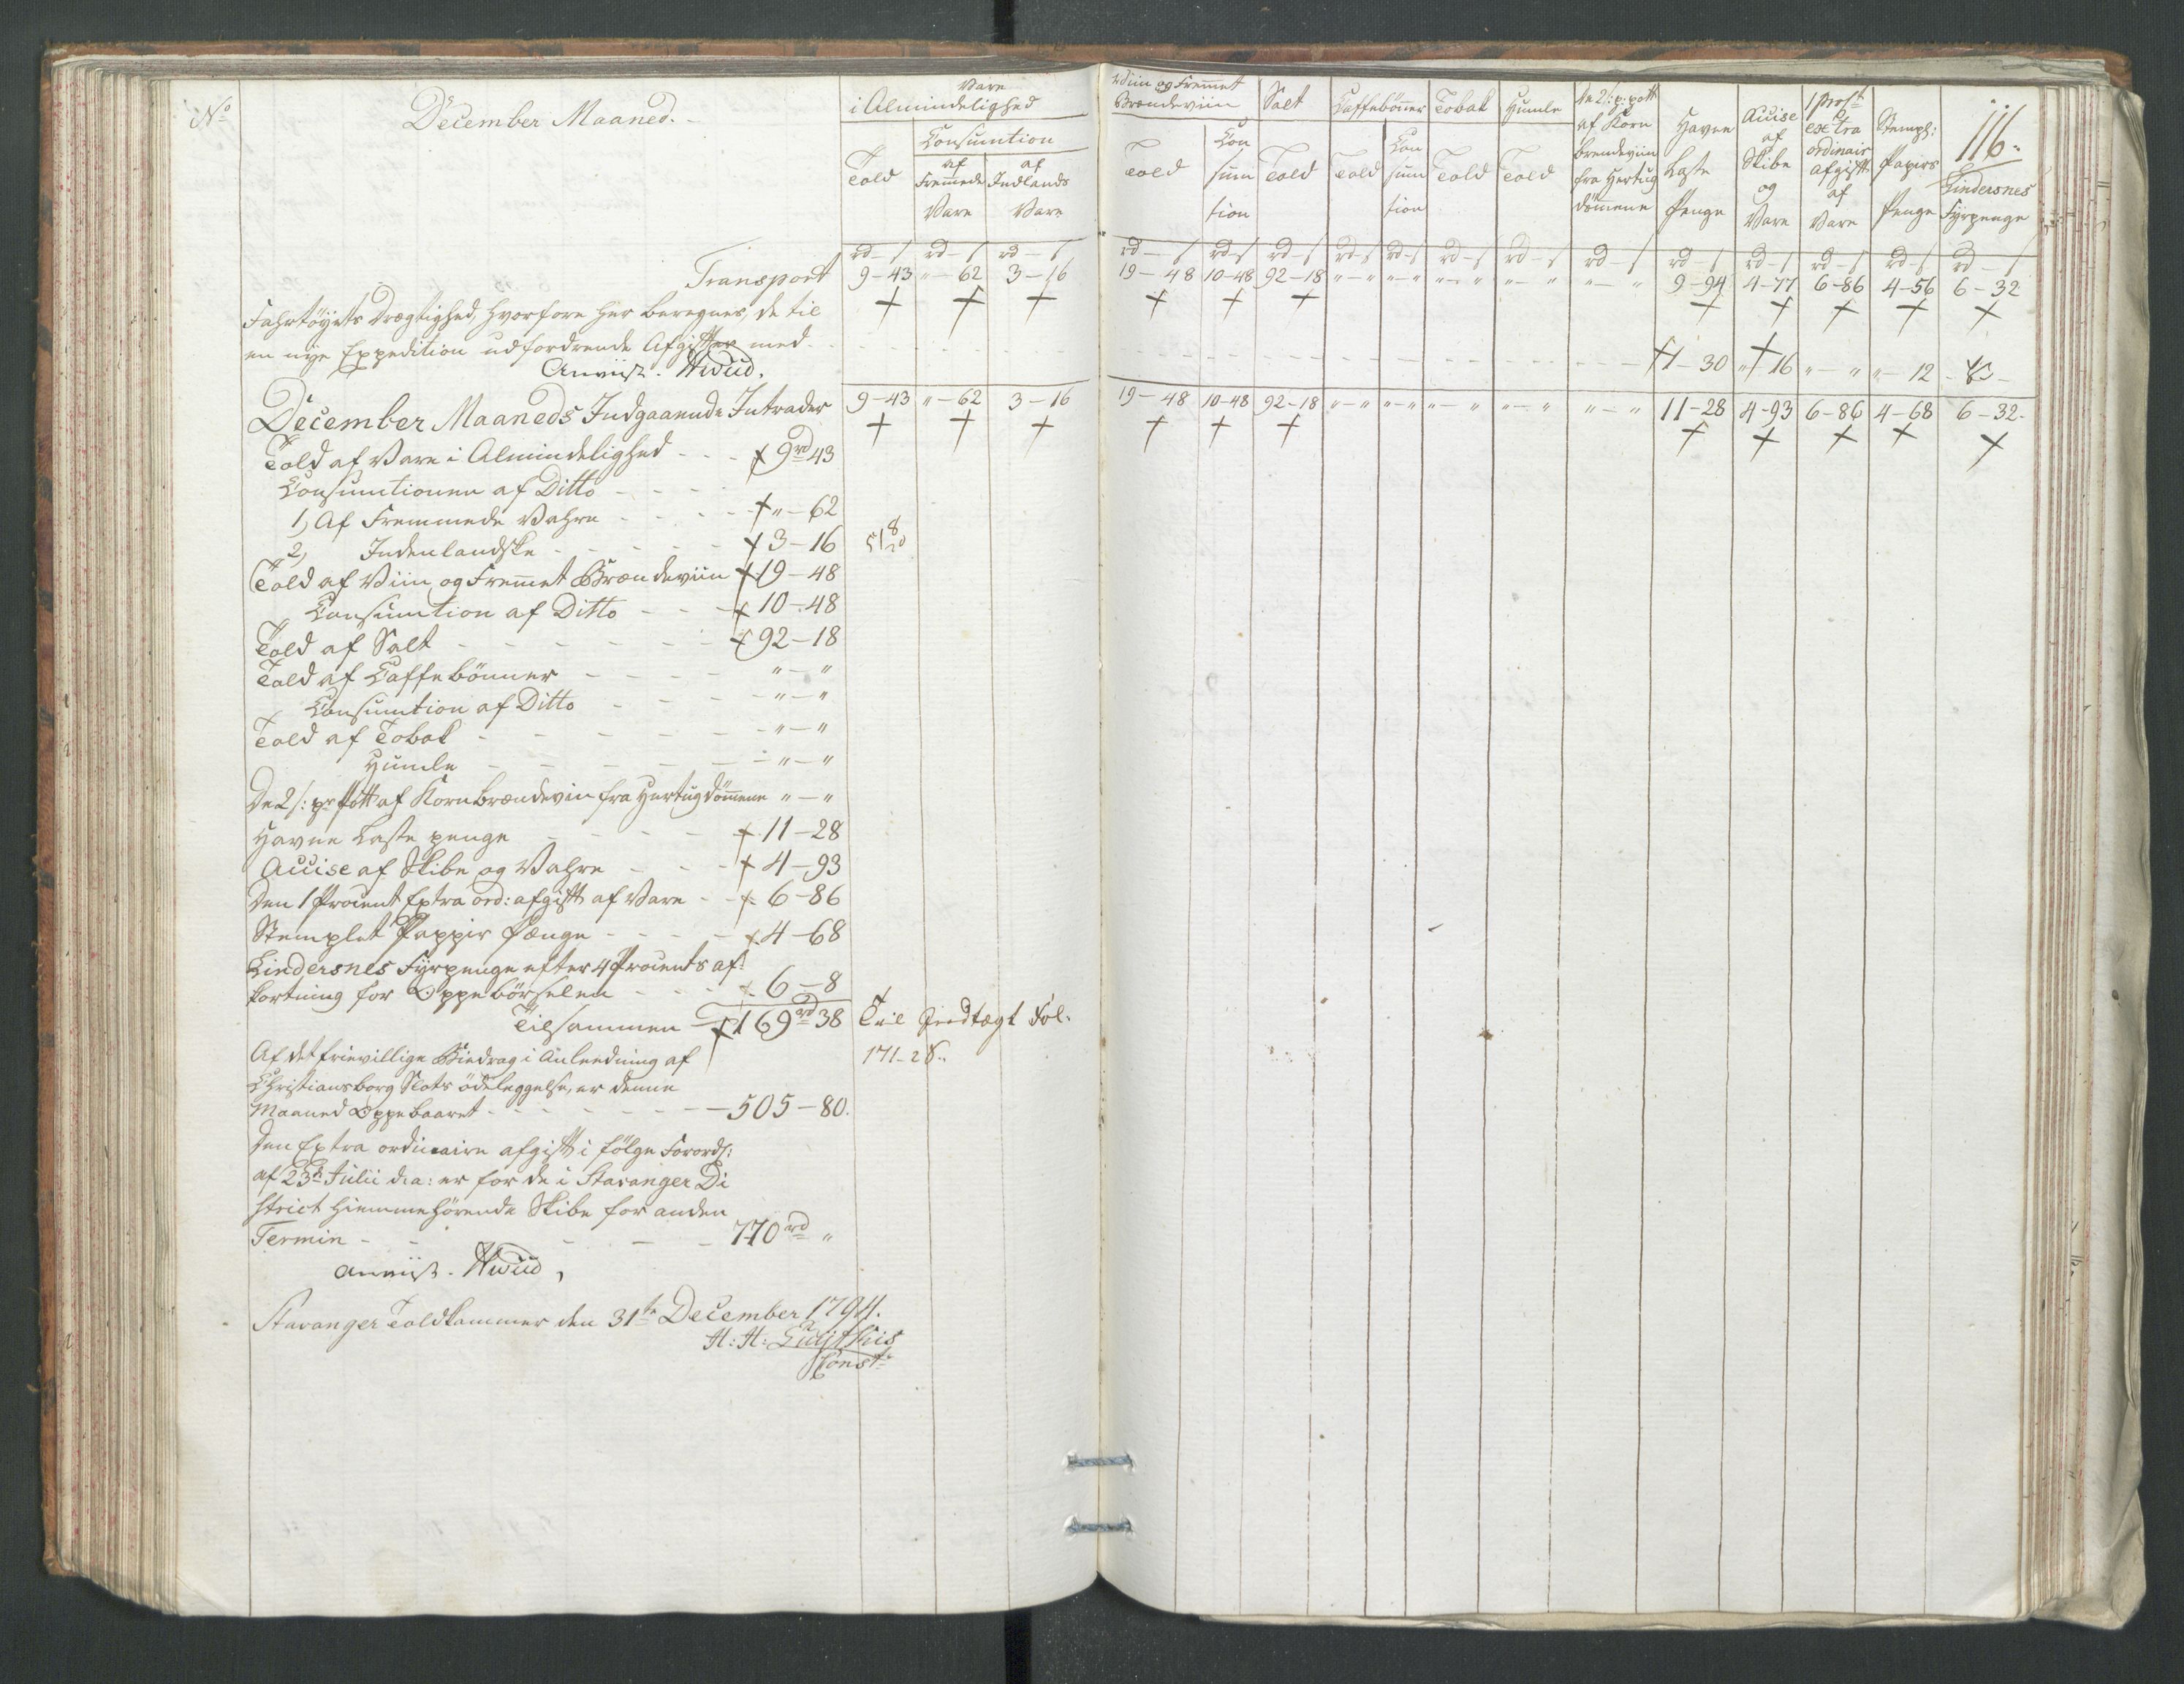 No
December Maaned.
Vare
i Almindelighed
Told
Consumtion
af Fremmede Vare
af Indlands Vare
Viin og Fremmet Brændeviin
Told
Consumtion
Salt
Told
Caffebønner
Told
Consumtion
Tobak
Told
Humle
Told
De 2 s: p: pott af Korn brendeviin fra Hertugdømmene
Havne Laste Penge
Accise af Skibe og Vare
1 Pro ct extra ordinair afgift af Vare
Stempl: Papirs Penge
116.
Lindersnes Fyrpenge
rd - s rd - s rd - s rd - s rd - s rd - s rd - s rd - s rd - s rd - s rd - s rd - s rd - s rd - s rd - s rd - s
Transport 9-43 "-62 3-16 19-48 10-48 92-18 "-" "-" "-" "-" "-" 9-94 4-77 6-86 4-56 6-32
Fahrtøyets Drægtighed, hvorfore her beregnes, de til
en nye Expedition udfordrende Afgifter med - - 1-30 "-16 "-" "-12
Anviist. 
December Maaneds Indgaaende Intrader 9-43 "-62 3-16 19-48 10-48 92-18 "-" "-" "-" "-" "-" 11-28 4-93 6-86 4-68 6-32.
Told af Vare i Almindelighed - - 9 rd 43
Consumtionen af Ditto - - -
1) Af Fremmede Vahre - - - "-62
2) Indenlandske - - - 3-16
Told af Viin og Fremmet Brændeviin 19-48
Consumtion af Ditto - - 10-48
Told af Salt - - - 92-18
Told af Caffebønner - - - "-"
Consumtion af Ditto - - - "-"
Told af Tobak - - - "-"
Humle - - - "-"
De 2 s: pr Pott af Kornbrændeviin fra Hertugdømmene "-"
Havne Laste penge - - - 11-28
Accise af Skibe og Vahre - - - 4-93
Den 1 Procent Extra ord: afgift af Vare - - 6-86
Stemplet Pappir Penge - - - 4-68
Lindersnes Fyrpenge efter 4 Procents af-
kortning for Oppebørselen - - - 6-8
Tilsammen 169 rd 38 Fol.
171-28.
Af det frievillige Biedrag i Anleedning af
Christiansborg Slots ødeleggelse, er denne
Maaned Oppebaaret - - - 505-80.
Den Extra ordinaire afgift i følge Forords:
af 23de Julii d:a: er for de i Stavanger Di
strict hiemmehørende Skibe for anden
Termin - - - 770 rd "
Anviist.
Stavanger Toldkammer den 31te December 1794.
H: H:
Const: